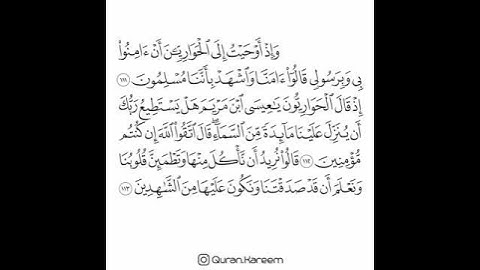 وَإِذْ أَوْحَيْتُ إِلَى ٱلْحَوَارِيِّـۧنَ أَنْ ءَامِنُوا۟
بِى وَبِرَسُولِى قَالُوٓا۟ ءَامَنَّا وَٱشْهَدْ بِأَنَّنَا مُسْلِمُونَ ١١١
إِذْ قَالَ ٱلْحَوَارِيُّونَ يَـٰعِيسَى ٱبْنَ مَرْيَمَ هَلْ يَسْتَطِيعُ رَبُّكَ
أَن يُنَزِّلَ عَلَيْنَا مَآئِدَةً مِّنَ ٱلسَّمَآءِ ۖ قَالَ ٱتَّقُوا۟ ٱللَّهَ إِن كُنتُم
مُّؤْمِنِينَ ١١٢ قَالُوا۟ نُرِيدُ أَن نَّأْكُلَ مِنْهَا وَتَطْمَئِنَّ قُلُوبُنَا
وَنَعْلَمَ أَن قَدْ صَدَقْتَنَا وَنَكُونَ عَلَيْهَا مِنَ ٱلشَّـٰهِدِينَ ١١٣
Quran.Kareem